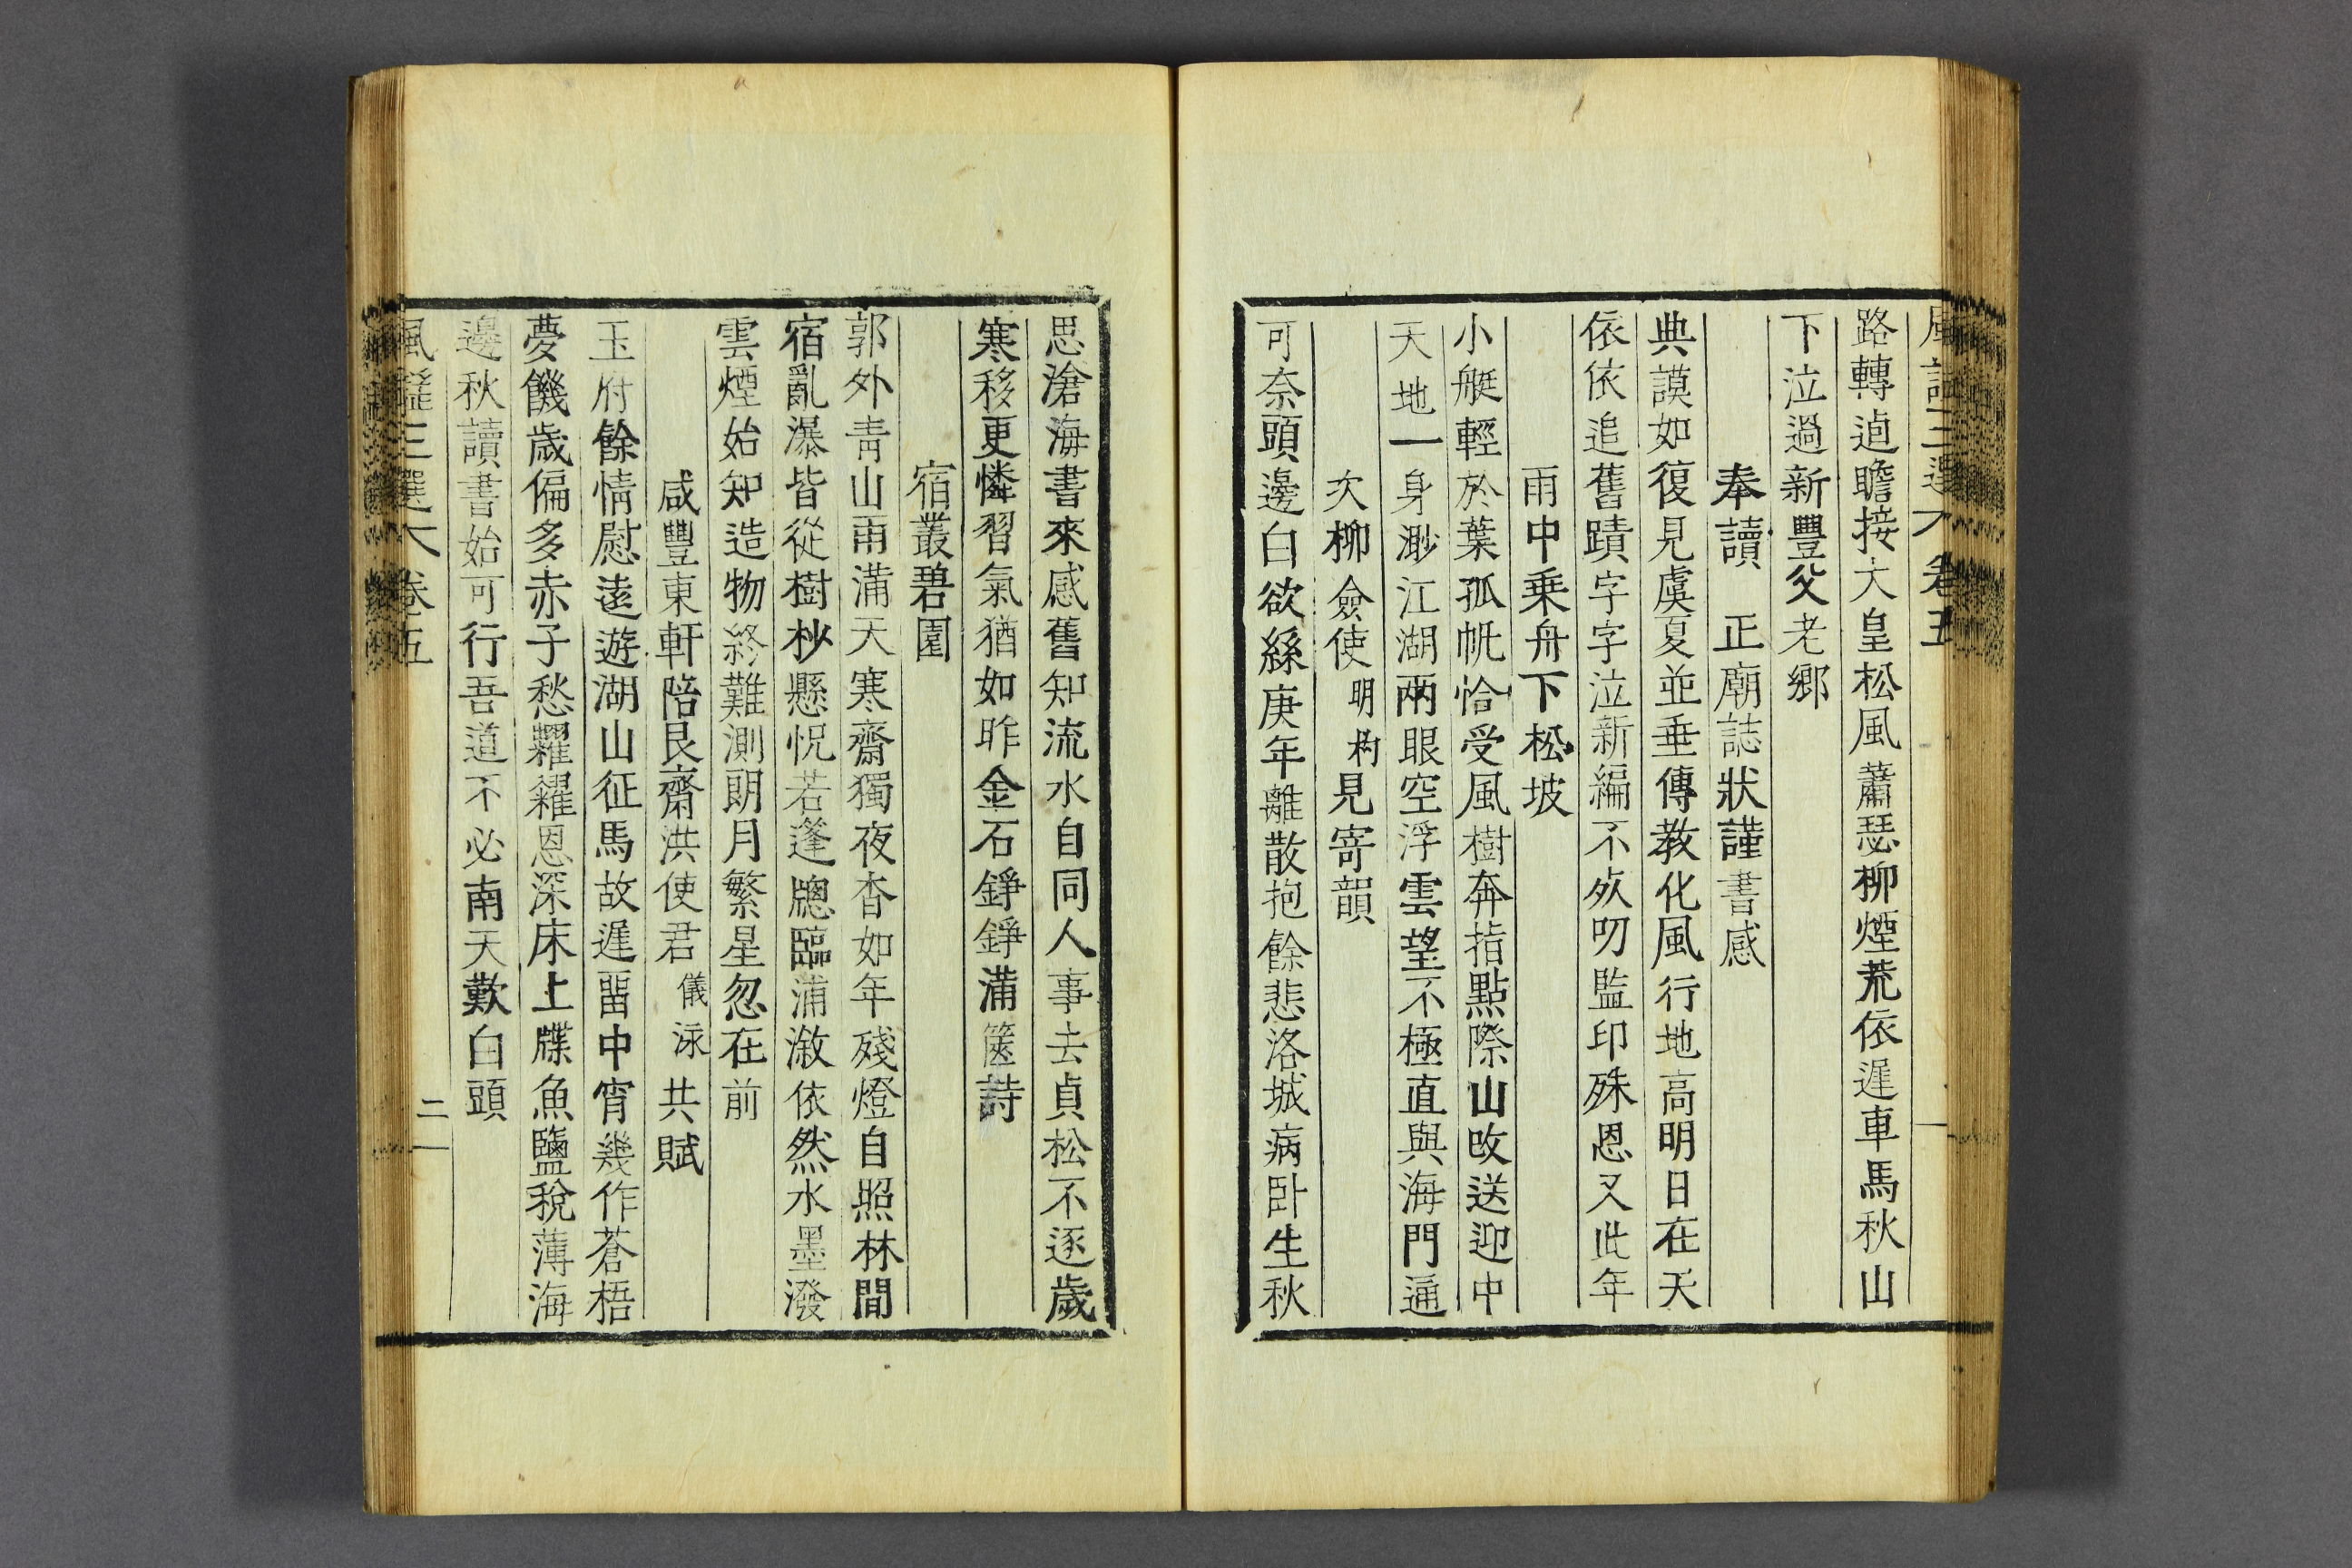 路轉逌瞻接大皇松風蕭瑟柳煙荒依遲車馬秋山
下泣過新豐父老鄉
奉讀 正廟誌狀謹書感
典謨如復見虞夏並垂傳教化風行地高明日在天
依依追舊蹟字字泣新編不死叨監印殊恩又此年
雨中乗舟下松坡
小艇輕於葉孤帆恰受風樹奔指點際山改送迎中
天地一身渺江湖兩眼空浮雲望不極直與海門通
次柳僉使明杓見寄韻
可奈頭邊白欲絲庚年離散抱餘悲洛城病卧生秋
思滄海書來感舊知流水自同人事去貞松不逐歲
寒移更憐習氣猶如昨金石錚錚滿篋詩
宿叢碧園
郭外靑山雨滿天寒齋獨夜杳如年殘燈自照林間
宿亂瀑皆從樹杪懸怳若蓬牕臨浦漵依然水墨潑
雲煙始知造物終難測朗月繁星忽在前
咸豐東軒陪艮齋洪使君儀泳共賦
玉府餘情慰遠遊湖山征馬故遲畱中宵幾作蒼梧
夢饑歲偏多赤子愁糶糴恩深床上牒魚鹽稅薄海
邊秋讀書始可行吾道不必南天歎白頭
三選 卷五
二